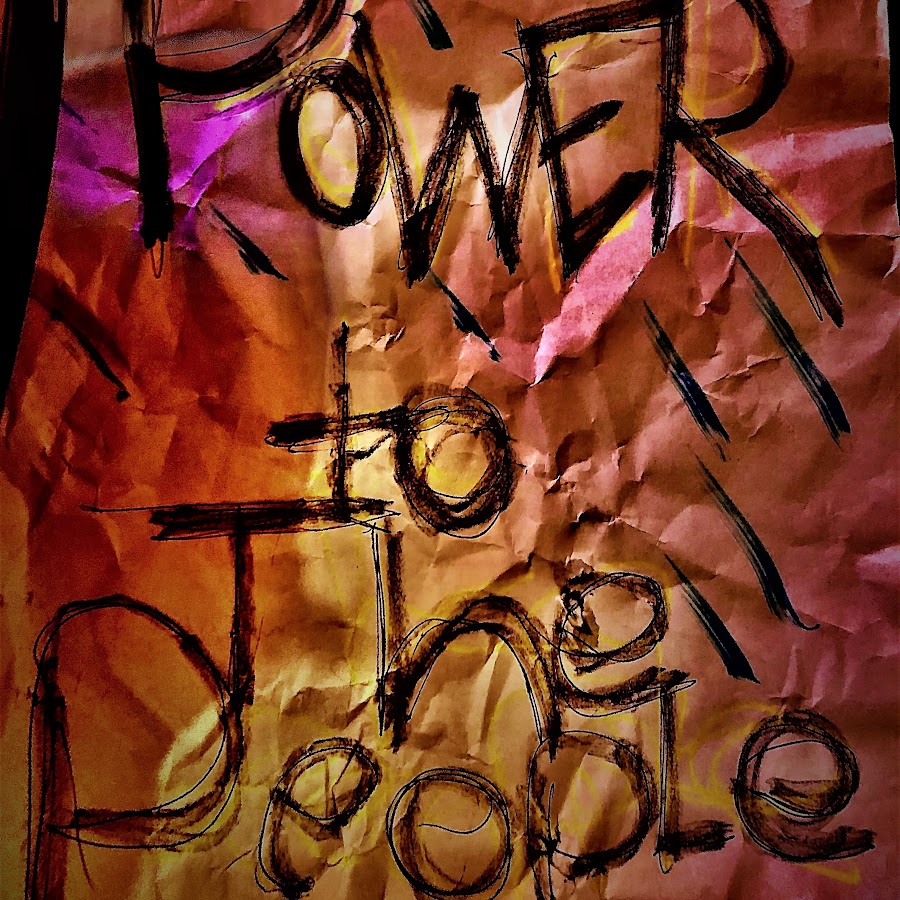 PoWER
to
The
People